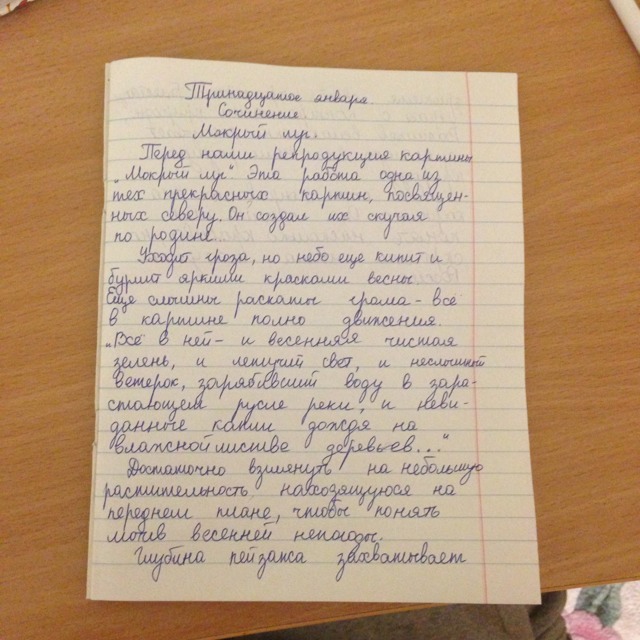 Тринадцатое января.
Сочинение
Мокрый луг.
Перед нами репродукция картины
„Мокрый луг" Эта работа одна из
тех прекрасных картин, посвящен-
ных северу. Он создал их скучая
по родине.
Уходит гроза, но небо еще кипит и
бурлит яркими красками весны
Еще слышны раскаты грома - всё
в картине полно движения.
„Всё в ней - и весенняя чистая
зелень, и летучий свет, и неслышный
ветерок, зарябивший воду в зара-
стающем русле реки, и неви-
данные капли дождя на
влажной листве деревьев..."
Достаточно взглянуть на небольшую
растительность находящуюся на
переднем плане, чтобы понять
мотив весенней непогоды.
Глубина пейзажа захватывает